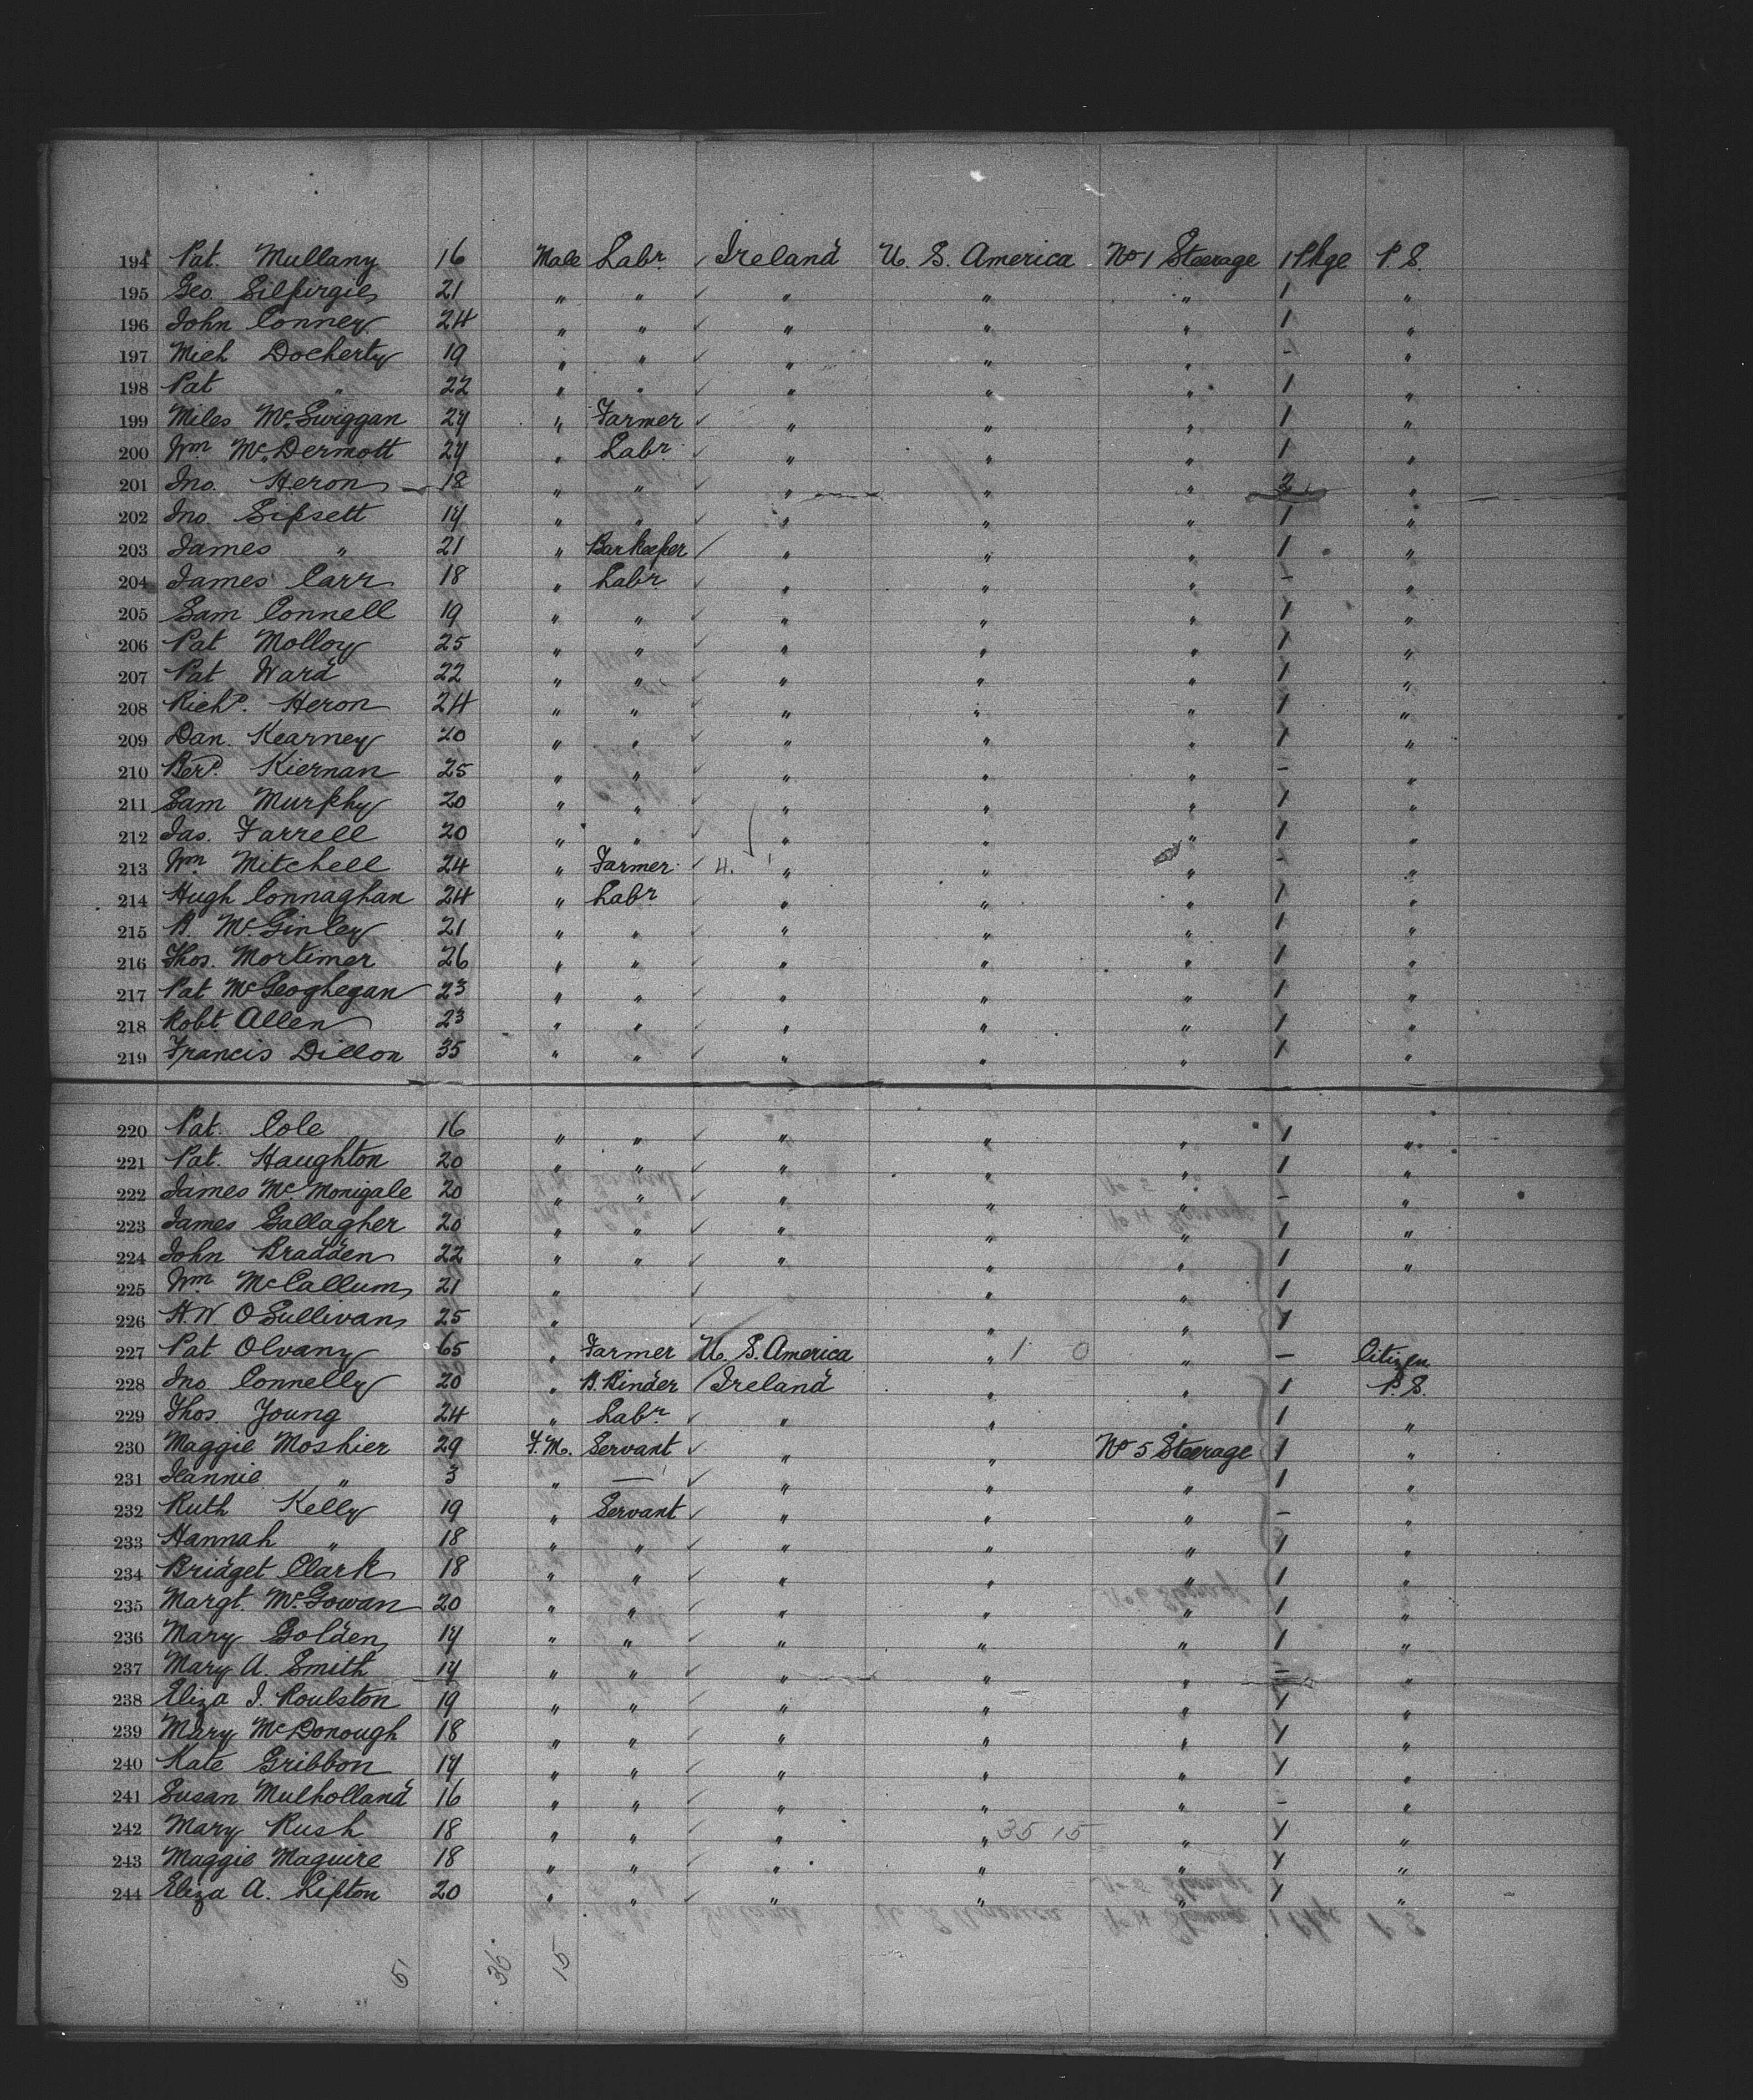 194 Pat. Mullany 16 Male Labr. ✓ Ireland U. S. America No 1 Steerage 1 Pkge P. S.
195 Geo. 21 " " ✓ " " " 1 "
196 John Conney 24 " " ✓ " " " 1 "
197 Mich Docherty 19 " " ✓ " " " - "
198 Pat " 22 " " ✓ " " " 1 "
199 Miles McSwiggan 24 " Farmer ✓ " " " 1 "
200 Wm. McDermott 24 " Labr. ✓ " " " 1 "
201 Jno. Heron 18 " " ✓ " " " 2 "
202 Jno Lipsett 17 " " ✓ " " " 1 "
203 James " 21 " Barkeeper / " " " 1 "
204 James Carr 18 " Labr ✓ " " " - "
205 Sam Connell 19 " " ✓ " " " 1 "
206 Pat Molloy 25 " " ✓ " " " 1 "
207 Pat Ward 22 " " ✓ " " " 1 "
208 Richd. Heron 24 " " ✓ " " " 1 "
209 Dan. Kearney 20 " " ✓ " " " 1 "
210 Berd. Kiernan 25 " " ✓ " " " - "
211 Sam Murphy 20 " " ✓ " " " 1 "
212 Jas. Farrell 20 " " ✓ " " " 1 "
213 Wm. Mitchell 24 " Farmer ✓ " " " - "
214 Hugh Connaghan 24 " Labr ✓ " " " 1 "
215 McGinley 21 " " ✓ " " " 1 "
216 Thos. Mortimer 26 " " ✓ " " " 1 "
217 Pat McGeoghegan 23 " " ✓ " " " 1 "
218 Robt Allen 23 " " ✓ " " " 1 "
219 Francis Dillon 35 " " ✓ " " " 1 "
220 Pat. Cole 16 " " ✓ " " " 1 "
221 Pat. Haughton 20 " " ✓ " " " 1 "
222 James McMonigale 20 " " ✓ " " " - "
223 James Gallagher 20 " " ✓ " " " 1 "
224 John Bradden 22 " " ✓ " " " 1 "
225 Wm. McCallum 21 " ✓ " " 1
226 H. W. OSullivan 25 " ✓ " " 1
227 Pat Olvany 65 " Farmer U. S. America " 1 0 " - Citizen
228 Jno Connelly 20 " B. Binder / Ireland " " 1 P. S.
229 Thos. Young 24 " Labr. ✓ " " " 1 "
230 Maggie Moshier 29 F. M. Servant ✓ " " No 5 Steerage 1 "
231 " 3 " — ✓ " " " 1 "
232 Ruth Kelly 19 " Servant ✓ " " " - "
233 Hannah " 18 " " ✓ " " " 1 "
234 Bridget Clark 18 " " ✓ " " " 1 "
235 Margt. McGowan 20 " " ✓ " " " 1 "
236 Mary Golden 17 " " ✓ " " " 1 "
237 Mary A. Smith 17 " " ✓ " " " - "
238 Eliza J. Roulston 19 " " ✓ " " " 1 "
239 Mary McDonough 18 " " ✓ " " " 1 "
240 Kate Gribbon 17 " " ✓ " " " 1 "
241 Susan Mulholland 16 " " ✓ " " " - "
242 Mary Rush 18 " " ✓ " " 35 15 " 1 "
243 Maggie Maguire 18 " " ✓ " " " 1 "
244 Eliza A. Lipton 20 " " ✓ " " " 1 "
51 36 15